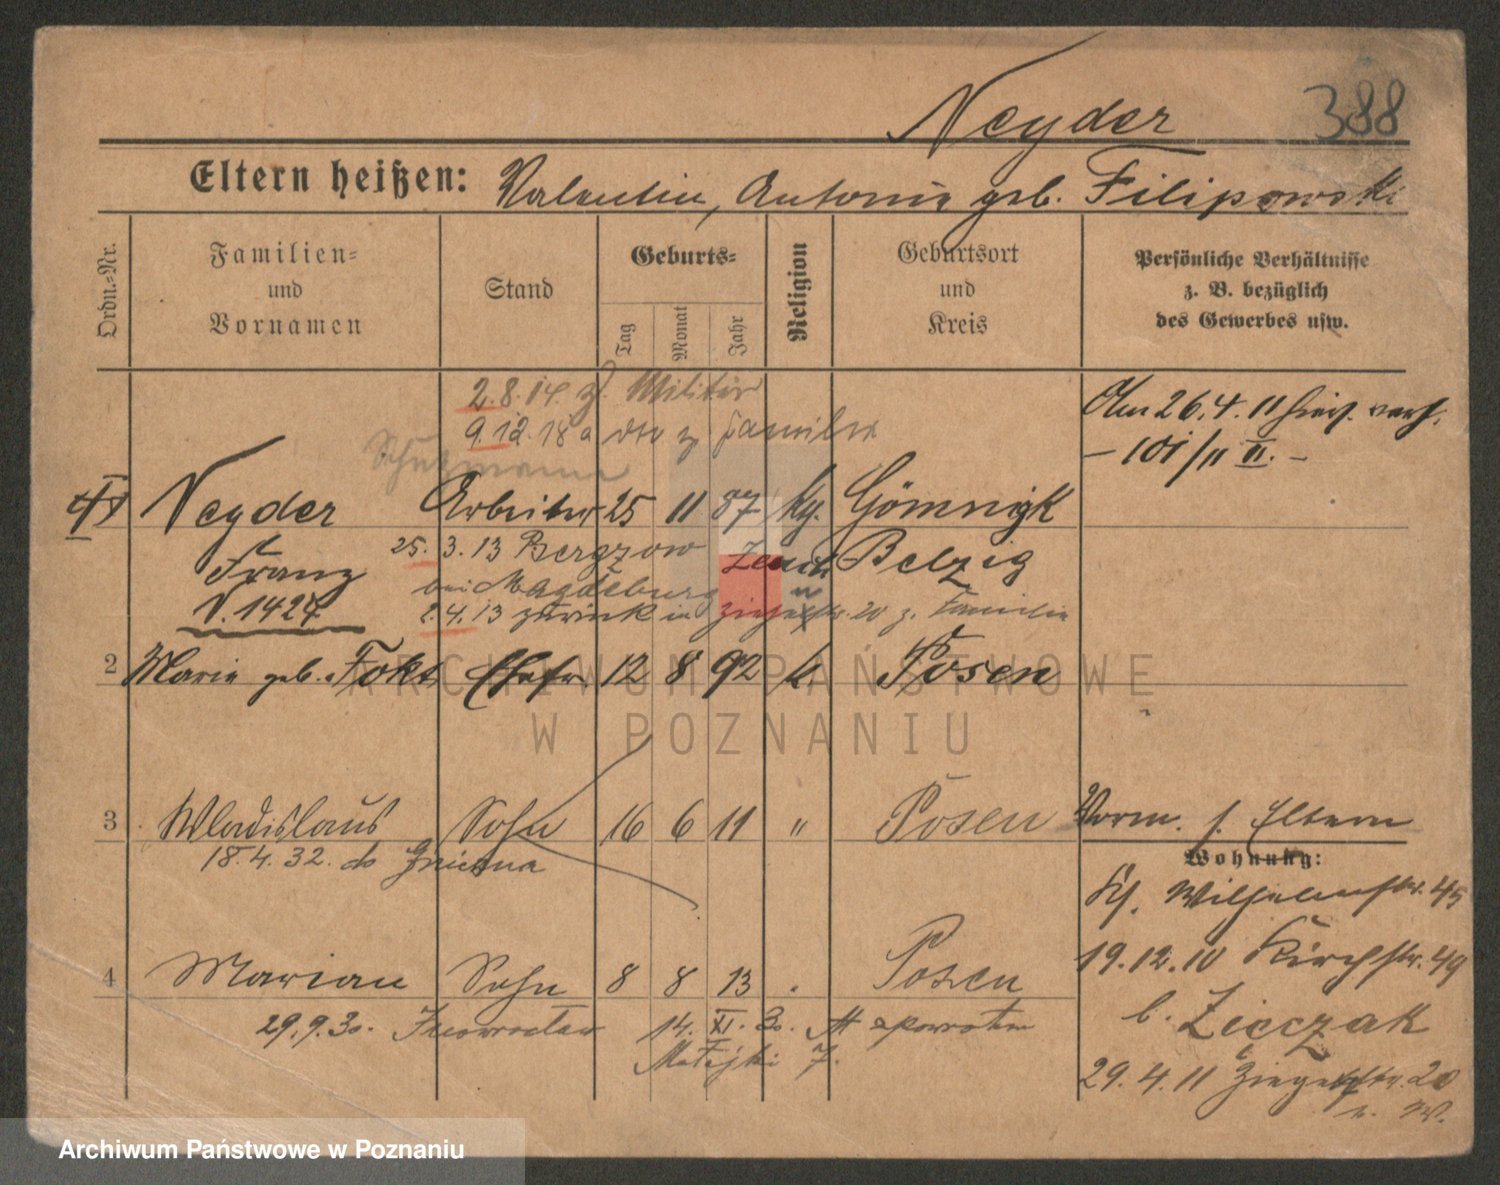 388
Neyder
Eltern heißen: Valentin, Antonie geb. Filipowski
Ordn.-Nr.
Familien- und Vornamen
Stand
Geburts-
Tag
Monat
Jahr
Religion
Geburtsort und Kreis
Persönliche Verhältnisse
z. B. bezüglich
des Gewerbes usw.
2.8.14. z. Militär
9.12.18 a dto z Familie
Am 26.4.11 verh.
– 101/11 II. –
Schutzmann
Neyder Arbeiter 25 11 87 kg. Gömnigk
25.3.13 Bergzow Belzig
Franz
bei Magdeburg
V. 1424
2.4.13 zurück in Ziegelstr. 20 z. Familie
2 Marie geb. Fokt Ehefr 12 8 92 k Posen
3 Wladislaus Sohn 16 6 11 " Posen
18.4.32. do Gniezna
Vorm. s. Eltern
Wohnung:
Wilhelmstr. 45
19.12.10 Kirchstr. 49
b. Zieczak
29.4.11 Ziegelstr. 20
n. W.
4 Marian Sohn 8 8 13 Posen
29.9.30. Inowrocław 14. XI. 30. z powrotem
Matejki 7.
ARCHIWUM PAŃSTWOWE
W POZNANIU
Archiwum Państwowe w Poznaniu